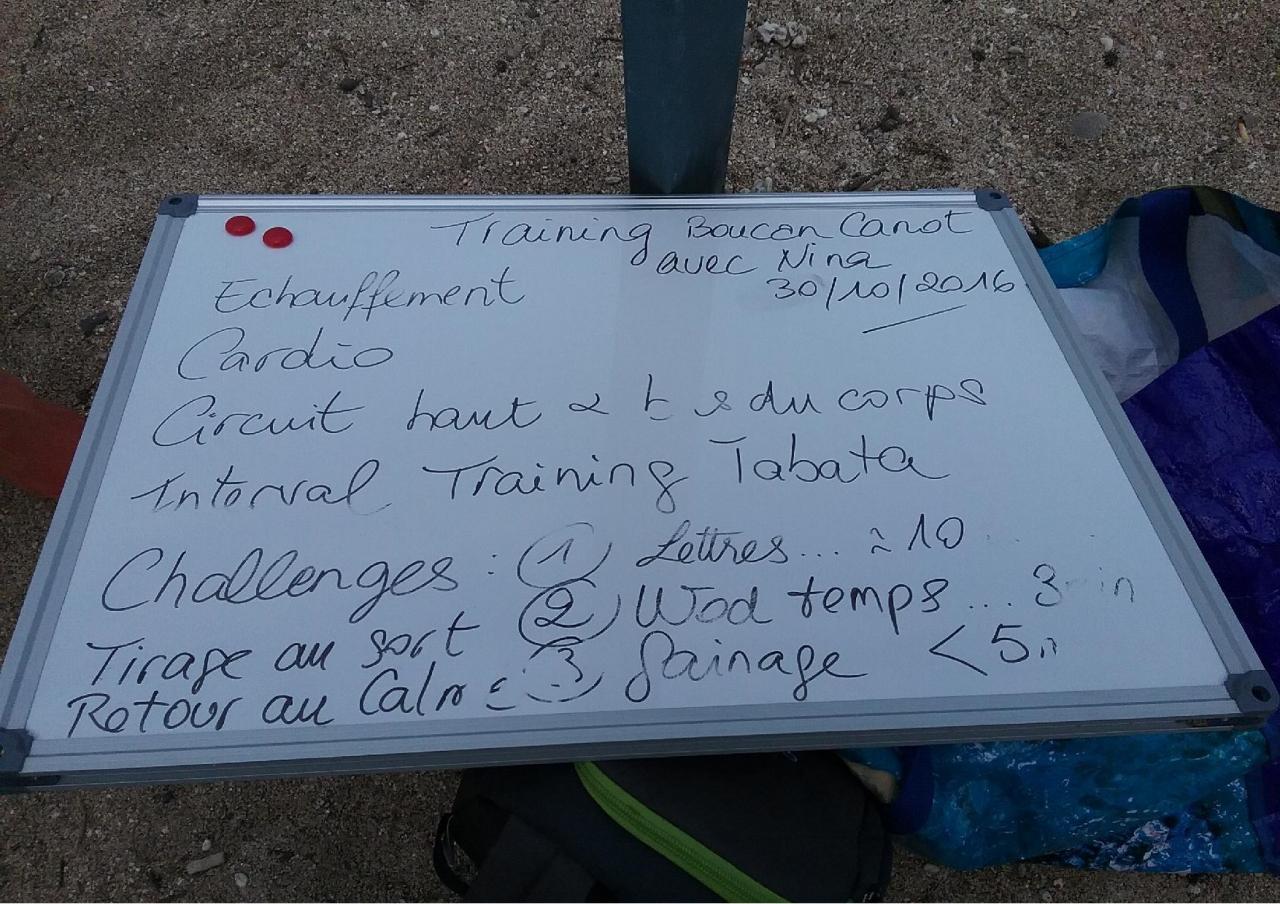 Training Boucan Canot
avec Nina
30/10/2016
Echauffement
Cardio
Circuit haut & b s du corps
Interval Training Tabata
Challenges : 1 Lettres... ≈ 10
2 Wod temps... 3 in
Tirage au sort 3 Gainage < 5
Retour au Calme